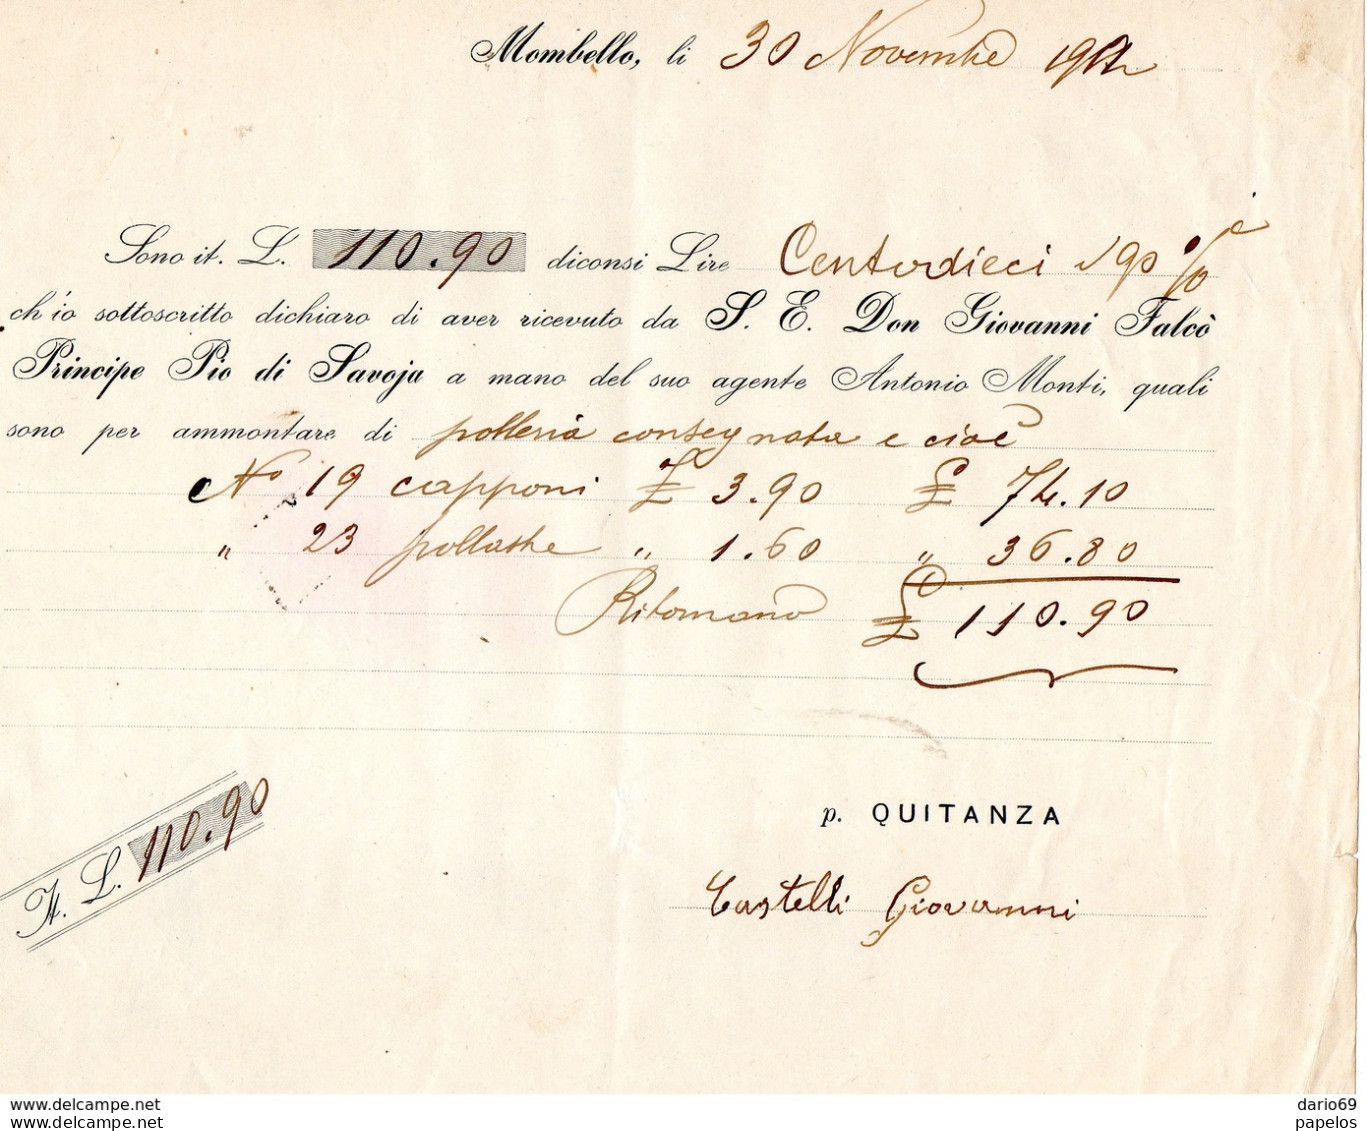 Mombello, li 30 Novembre
Sono it. L. 110.90 diconsi Lire Centodieci 90 %
ch'io sottoscritto dichiaro di aver ricevuto da S. E. Don Giovanni Falcò
Principe Pio di Savoja a mano del suo agente Antonio Monti, quali
sono per ammontare di polleria consegnata e cioè
No 19 capponi £ 3.90 £ 74.10
" 23 pollastre " 1.60 " 36.80
Ritornano £ 110.90
It. L. 110.90
p. QUITANZA
Castelli Giovanni
www.delcampe.net
www.delcampe.net
dario69
papelos